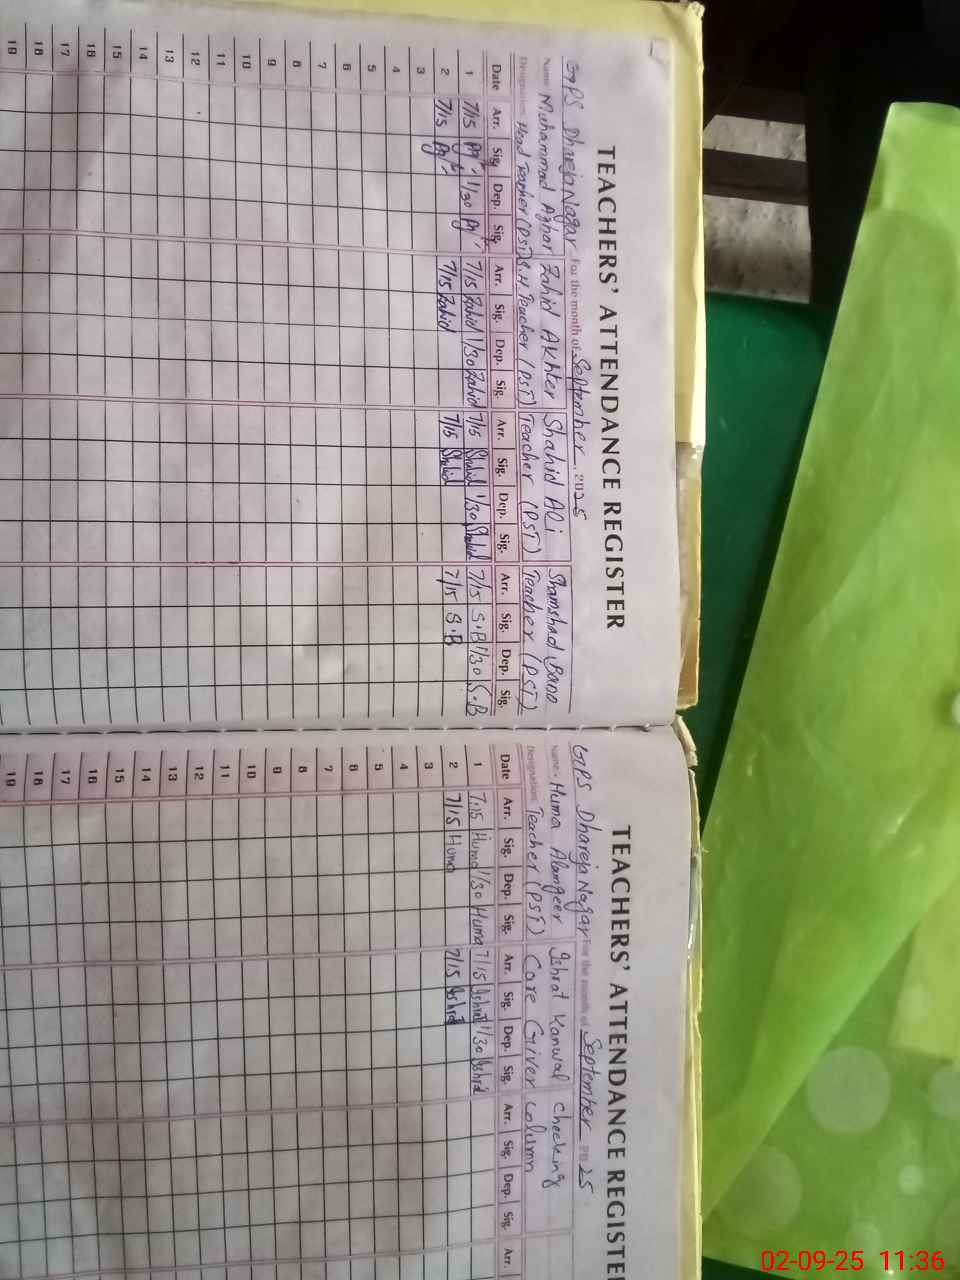 TEACHERS' ATTENDANCE REGISTER
GPS Dhareja Nagar For the month of September 2025
Name: Muhammad Azhar Zahid Akhter Shahid Ali Shamshad Bano
Designation: Head Teacher (PST) S.H. Teacher (PST) Teacher (PST) Teacher (PST)
Date Arr. Sig. Dep. Sig. Arr. Sig. Dep. Sig. Arr. Sig. Dep. Sig. Arr. Sig. Dep. Sig.
1 7/15 1/30 7/15 Zahid 1/30 Zahid 7/15 Shahid 1/30 Shahid 7/15 S.B 1/30 S.B
2 7/15 7/15 Zahid 7/15 Shahid 7/15 S.B
3
4
5
6
7
8
9
10
11
12
13
14
15
16
17
18
19
TEACHERS' ATTENDANCE REGISTER
GPS Dhareja Nagar For the month of September 2025
Name: Huma Alamgeer Ishrat Kanwal Checking
Designation: Teacher (PST) Care Giver Column
Date Arr. Sig. Dep. Sig. Arr. Sig. Dep. Sig. Arr. Sig. Dep. Sig. Arr.
1 7:15 Huma 1/30 Huma 7/15 Ishrat 1/30 Ishrat
2 7/15 Huma 7/15 Ishrat
3
4
5
6
7
8
9
10
11
12
13
14
15
16
17
18
19
02-09-25 11:36